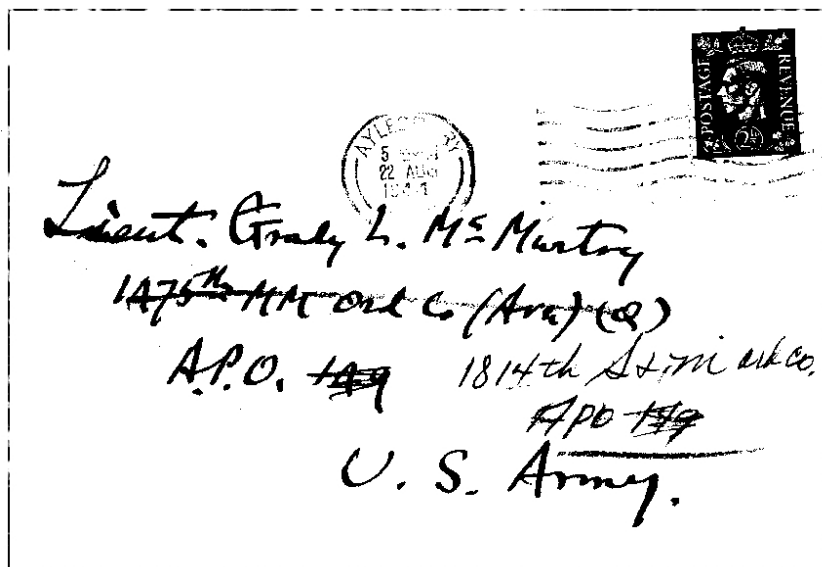 POSTAGE REVENUE
2½D
AYLESBURY
22 AUG
1944
Lieut. Grady L. Mc Murtry
1475th MM Ord Co (Avn) (Q)
A.P.O. 149
1814th S & M ord co.
APO 149
U. S. Army.